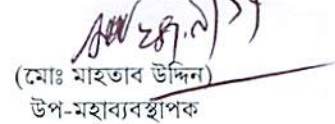 (মোঃ মাহতাব উদ্দিন)
উপ-মহাব্যবস্থাপক